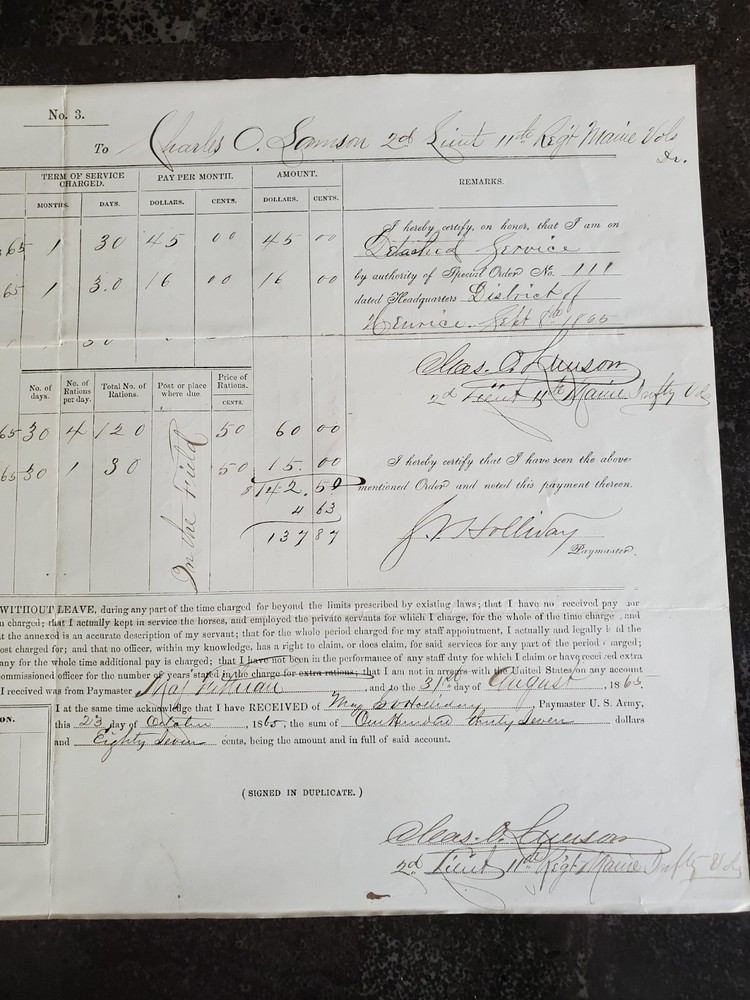 No. 3.
To Charles O. Lamson 2d Lieut 11th Reg't Maine Vols
&c.
TERM OF SERVICE CHARGED. PAY PER MONTH. AMOUNT. REMARKS.
MONTHS. DAYS. DOLLARS. CENTS. DOLLARS. CENTS.
65 1 30 45 00 45 00
65 1 30 16 00 16 00
30
I hereby certify, on honor, that I am on
Detached Service
by authority of Special Order No. 111
dated Headquarters District of
Henrico Sept 8th 1865
Chas. O. Lamson
2d Lieut 11th Maine Infty Vols
No. of days. No. of Rations per day. Total No. of Rations. Post or place where due. Price of Rations.
CENTS.
65 30 4 120 50 60 00
65 30 1 30 50 15.00
On the Field
$142.50
4 63
137 87
I hereby certify that I have seen the above-
mentioned Order and noted this payment thereon.
Holliday
Paymaster.
WITHOUT LEAVE, during any part of the time charged for beyond the limits prescribed by existing laws; that I have no received pay for
charged; that I actually kept in service the horses, and employed the private servants for which I charge, for the whole of the time charge and
t the annexed is an accurate description of my servant; that for the whole period charged for my staff appointment, I actually and legally h ld the
ost charged for; and that no officer, within my knowledge, has a right to claim, or does claim, for said services for any part of the period c arged;
any for the whole time additional pay is charged; that I have not been in the performance of any staff duty for which I claim or have received extra
ommissioned officer for the number of years stated in the charge for extra rations; that I am not in arrears with the United States on any account
I received was from Paymaster Maj , and to the 31st day of August, 1865.
I at the same time acknowledge that I have RECEIVED of Maj Holliday Paymaster U. S. Army,
this 23 day of October, 1865, the sum of One Hundred thirty Seven dollars
and Eighty Seven cents, being the amount and in full of said account.
ON.
(SIGNED IN DUPLICATE.)
Chas. O. Lamson
2d Lieut 11th Reg't Maine Infty Vols